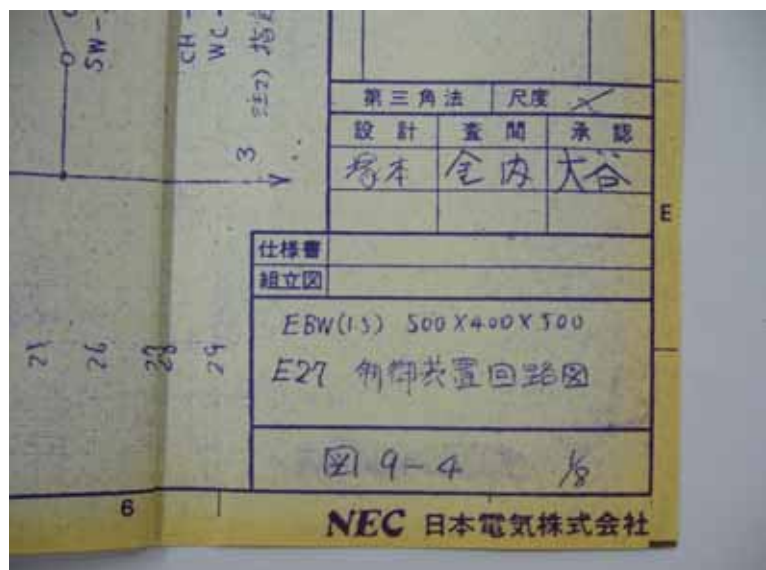 SW-
CH-
WC-
注2) 指定
3
第三角法 尺度
設計 査閲 承認
塚本 金内 大谷
E
仕様書
組立図
EBW(1.5) 500X400X500
E27 制御装置回路図
26
28
29
図 9-4 1/8
6
NEC 日本電気株式会社